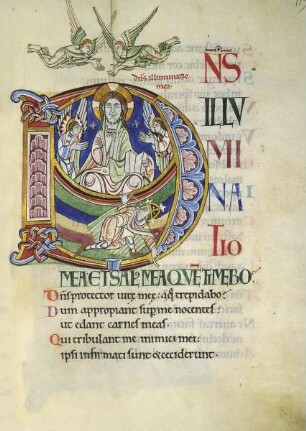 Dñs illuminatio
mea.
D
ÑS
ILLV
MI
NA
TIO
MEA ET SAL᾿ MEA QVĒ TIMEBO.
Dñs protector vite mee: a q̊ trepidabo:
Dum appropiant sup me nocentes:
ut edant carnes meas.
Qui tribulant me inimici mei:
ipsi infirmati sunt & ceciderunt.